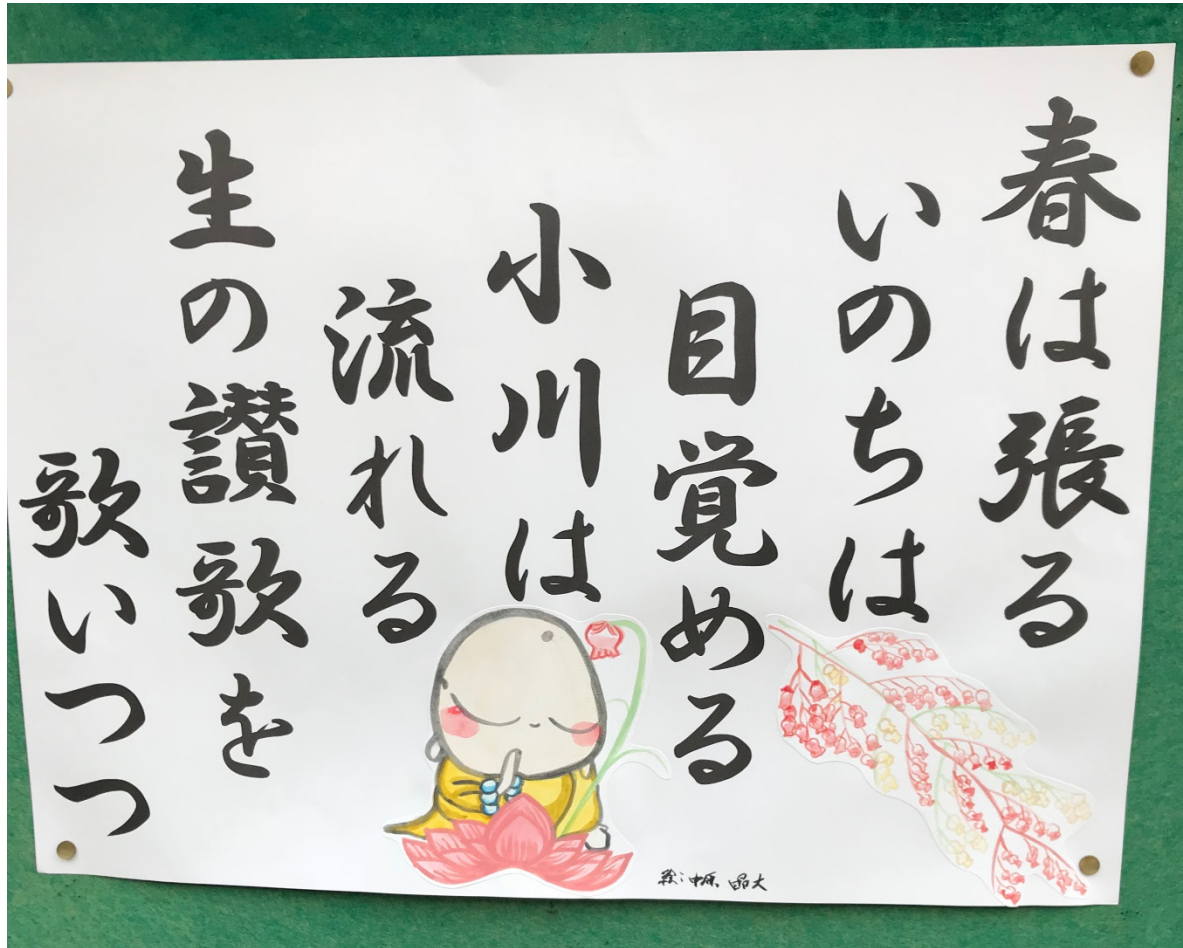 春は張る
いのちは
目覚める
小川は
流れる
生の讃歌を
歌いつつ